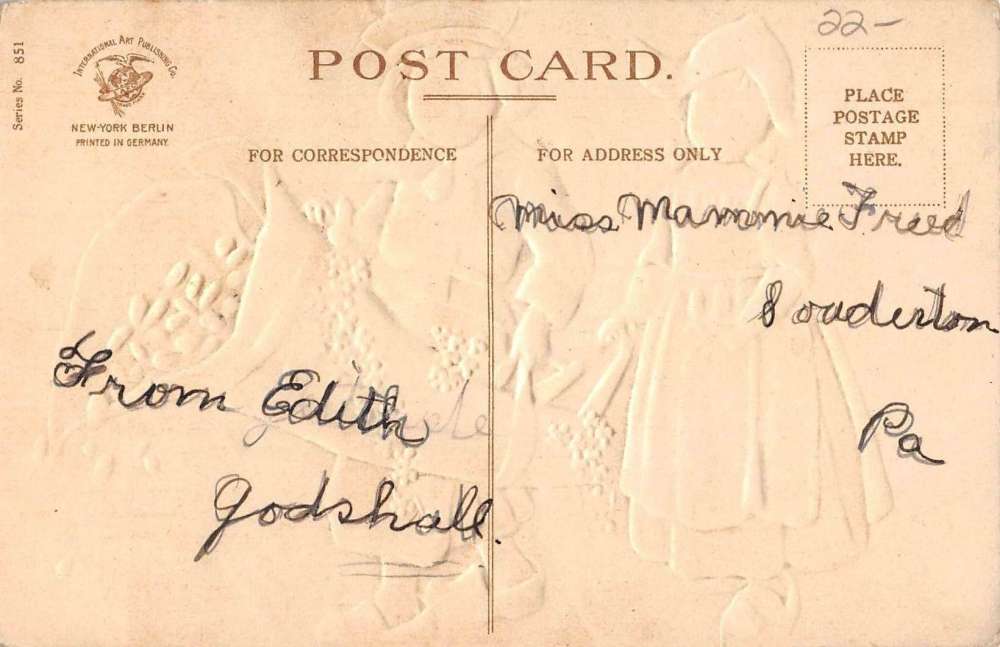 22-
Series No. 851
INTERNATIONAL ART PUBLISHING Co.
NEW-YORK BERLIN
PRINTED IN GERMANY.
POST CARD.
PLACE
POSTAGE
STAMP
HERE.
FOR CORRESPONDENCE
FOR ADDRESS ONLY
Miss Mammie Freed
Souderton
Pa
From Edith
Godshall.